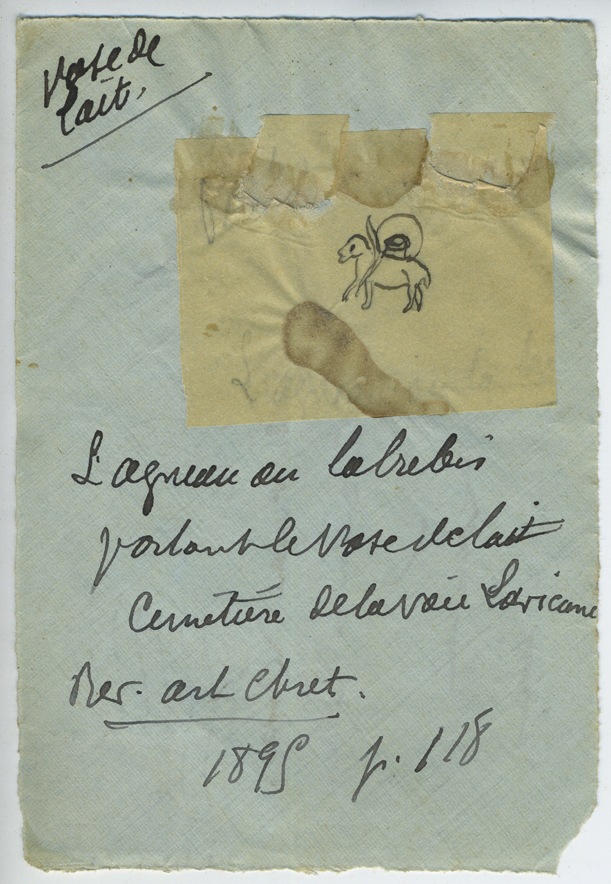 Vase de
lait.
L'agneau ou la brebis
portant le Vase de lait
Cimetière de la voie Lavicane
Rev. art Chret.
1895 p. 118